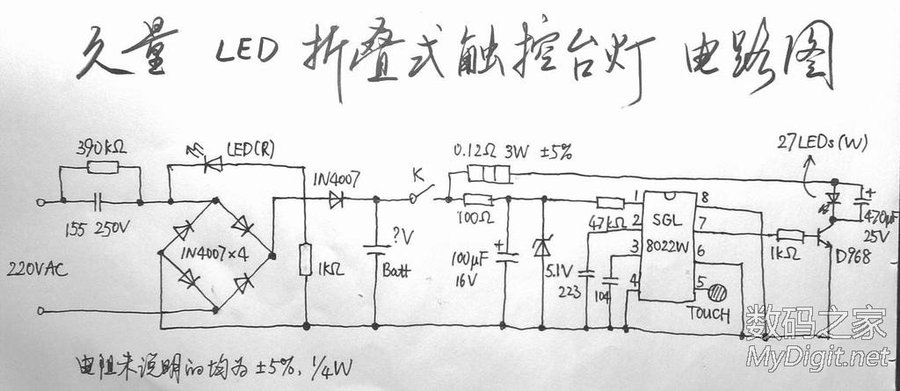 久量 LED 折叠式触控台灯 电路图
390kΩ
155 250V
220VAC
LED(R)
1N4007×4
1N4007
1kΩ
?V
Batt
K
0.12Ω 3W ±5%
100Ω
100μF
16V
5.1V
47kΩ
223
104
1
2
3
4
SGL
8022W
8
7
6
5
TOUCH
1kΩ
27LEDs(W)
470μF
25V
D968
电阻未说明的均为±5%, 1/4W
数码之家
MyDigit.net